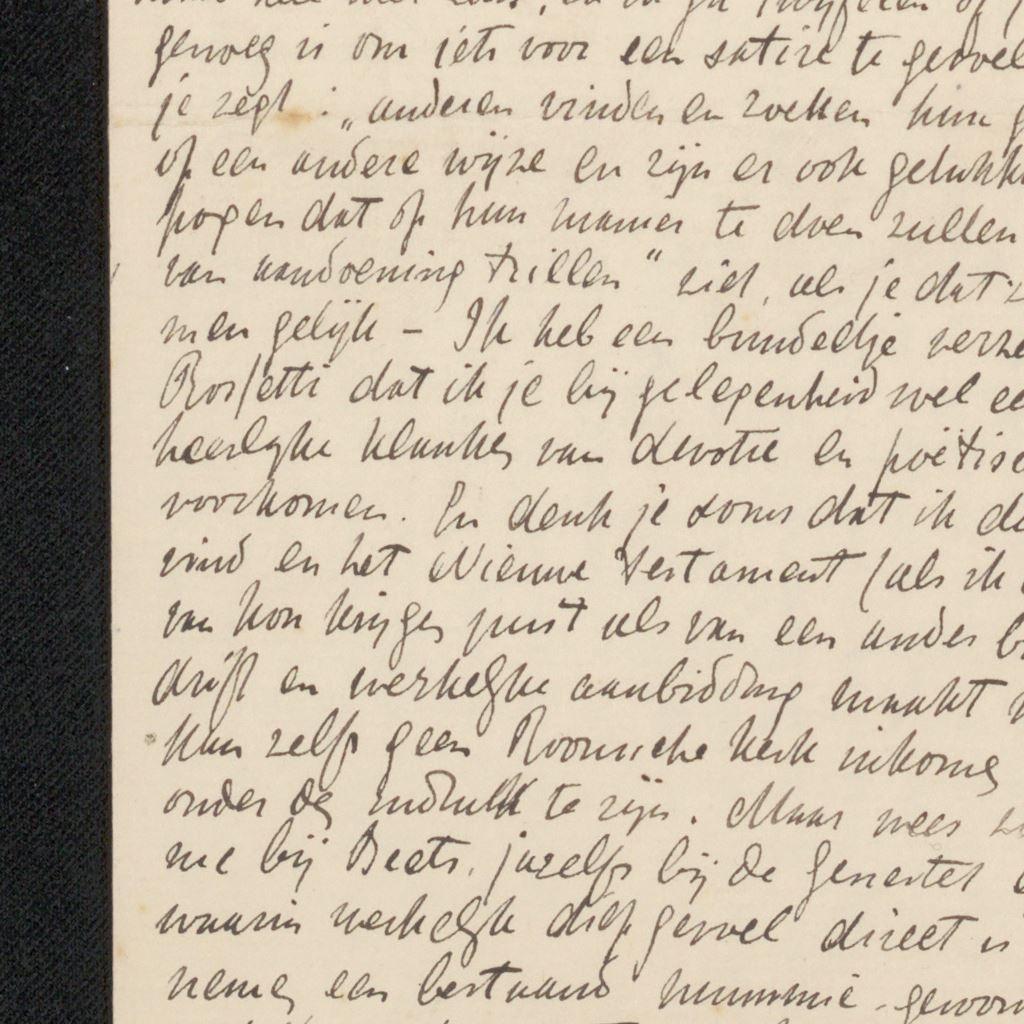 genoeg is om iets voor een satire te gevoel
je zegt : „anderen vinden en zoeken hun g
op een andere wijze en zijn er ook gelukk
pogen dat op hun manier te doen zullen
van aandoening trillen" ziet, als je dat z
men gelijk – Ik heb een bundeltje verze
Rossetti dat ik je bij gelegenheid wel ee
heerlijke klanken van devotie en poëtisc
voorkomen. En denk je soms dat ik de
vind en het Nieuwe Testament (als ik
van kon krijgen juist als van een ander b
drift en werkelijke aanbidding maakt
kan zelfs geen Roomsche kerk inkomen
onder den indruk te zijn. Maar wees
me bij Beets, ja zelfs bij de Genestet
waarin werkelijk diep gevoel direct is
nemen een bestaand nummie - gewoon